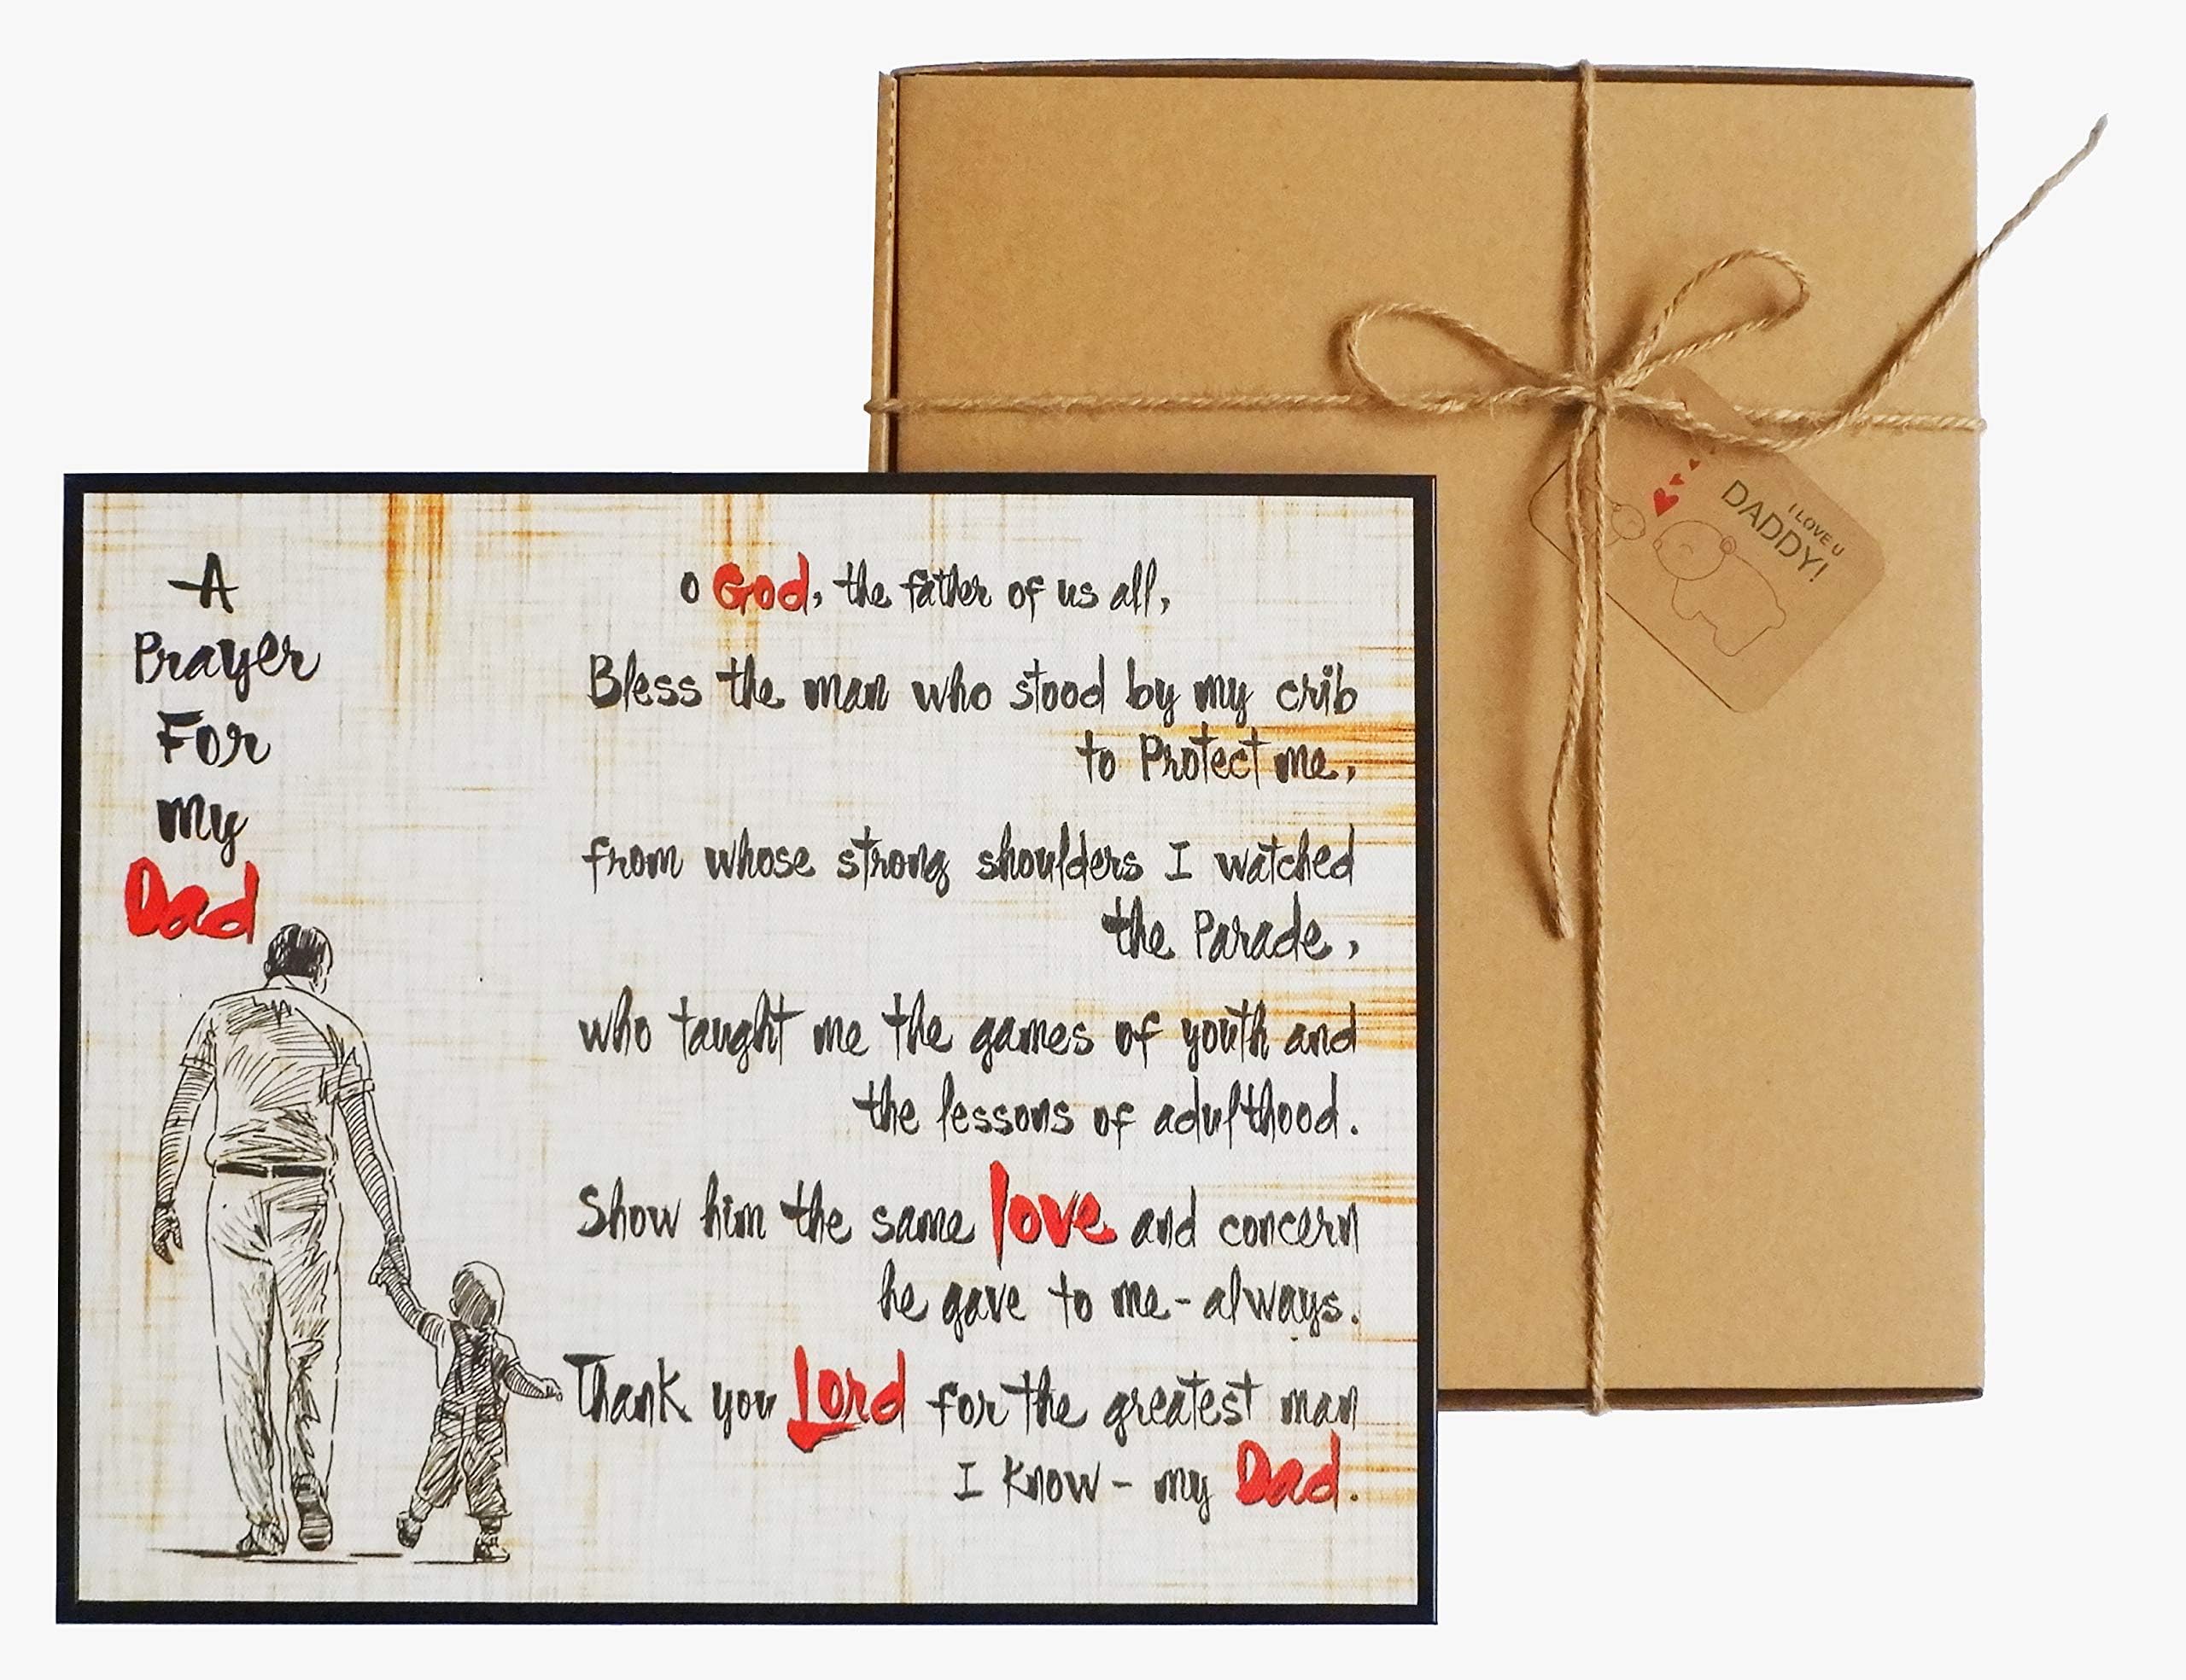 A
Prayer
For
my
Dad
O God, the father of us all,
Bless the man who stood by my crib
to Protect me,
from whose strong shoulders I watched
the Parade,
who taught me the games of youth and
the lessons of adulthood.
Show him the same love and concern
he gave to me - always.
Thank you Lord for the greatest man
I know - my Dad.
I LOVE U
DADDY!